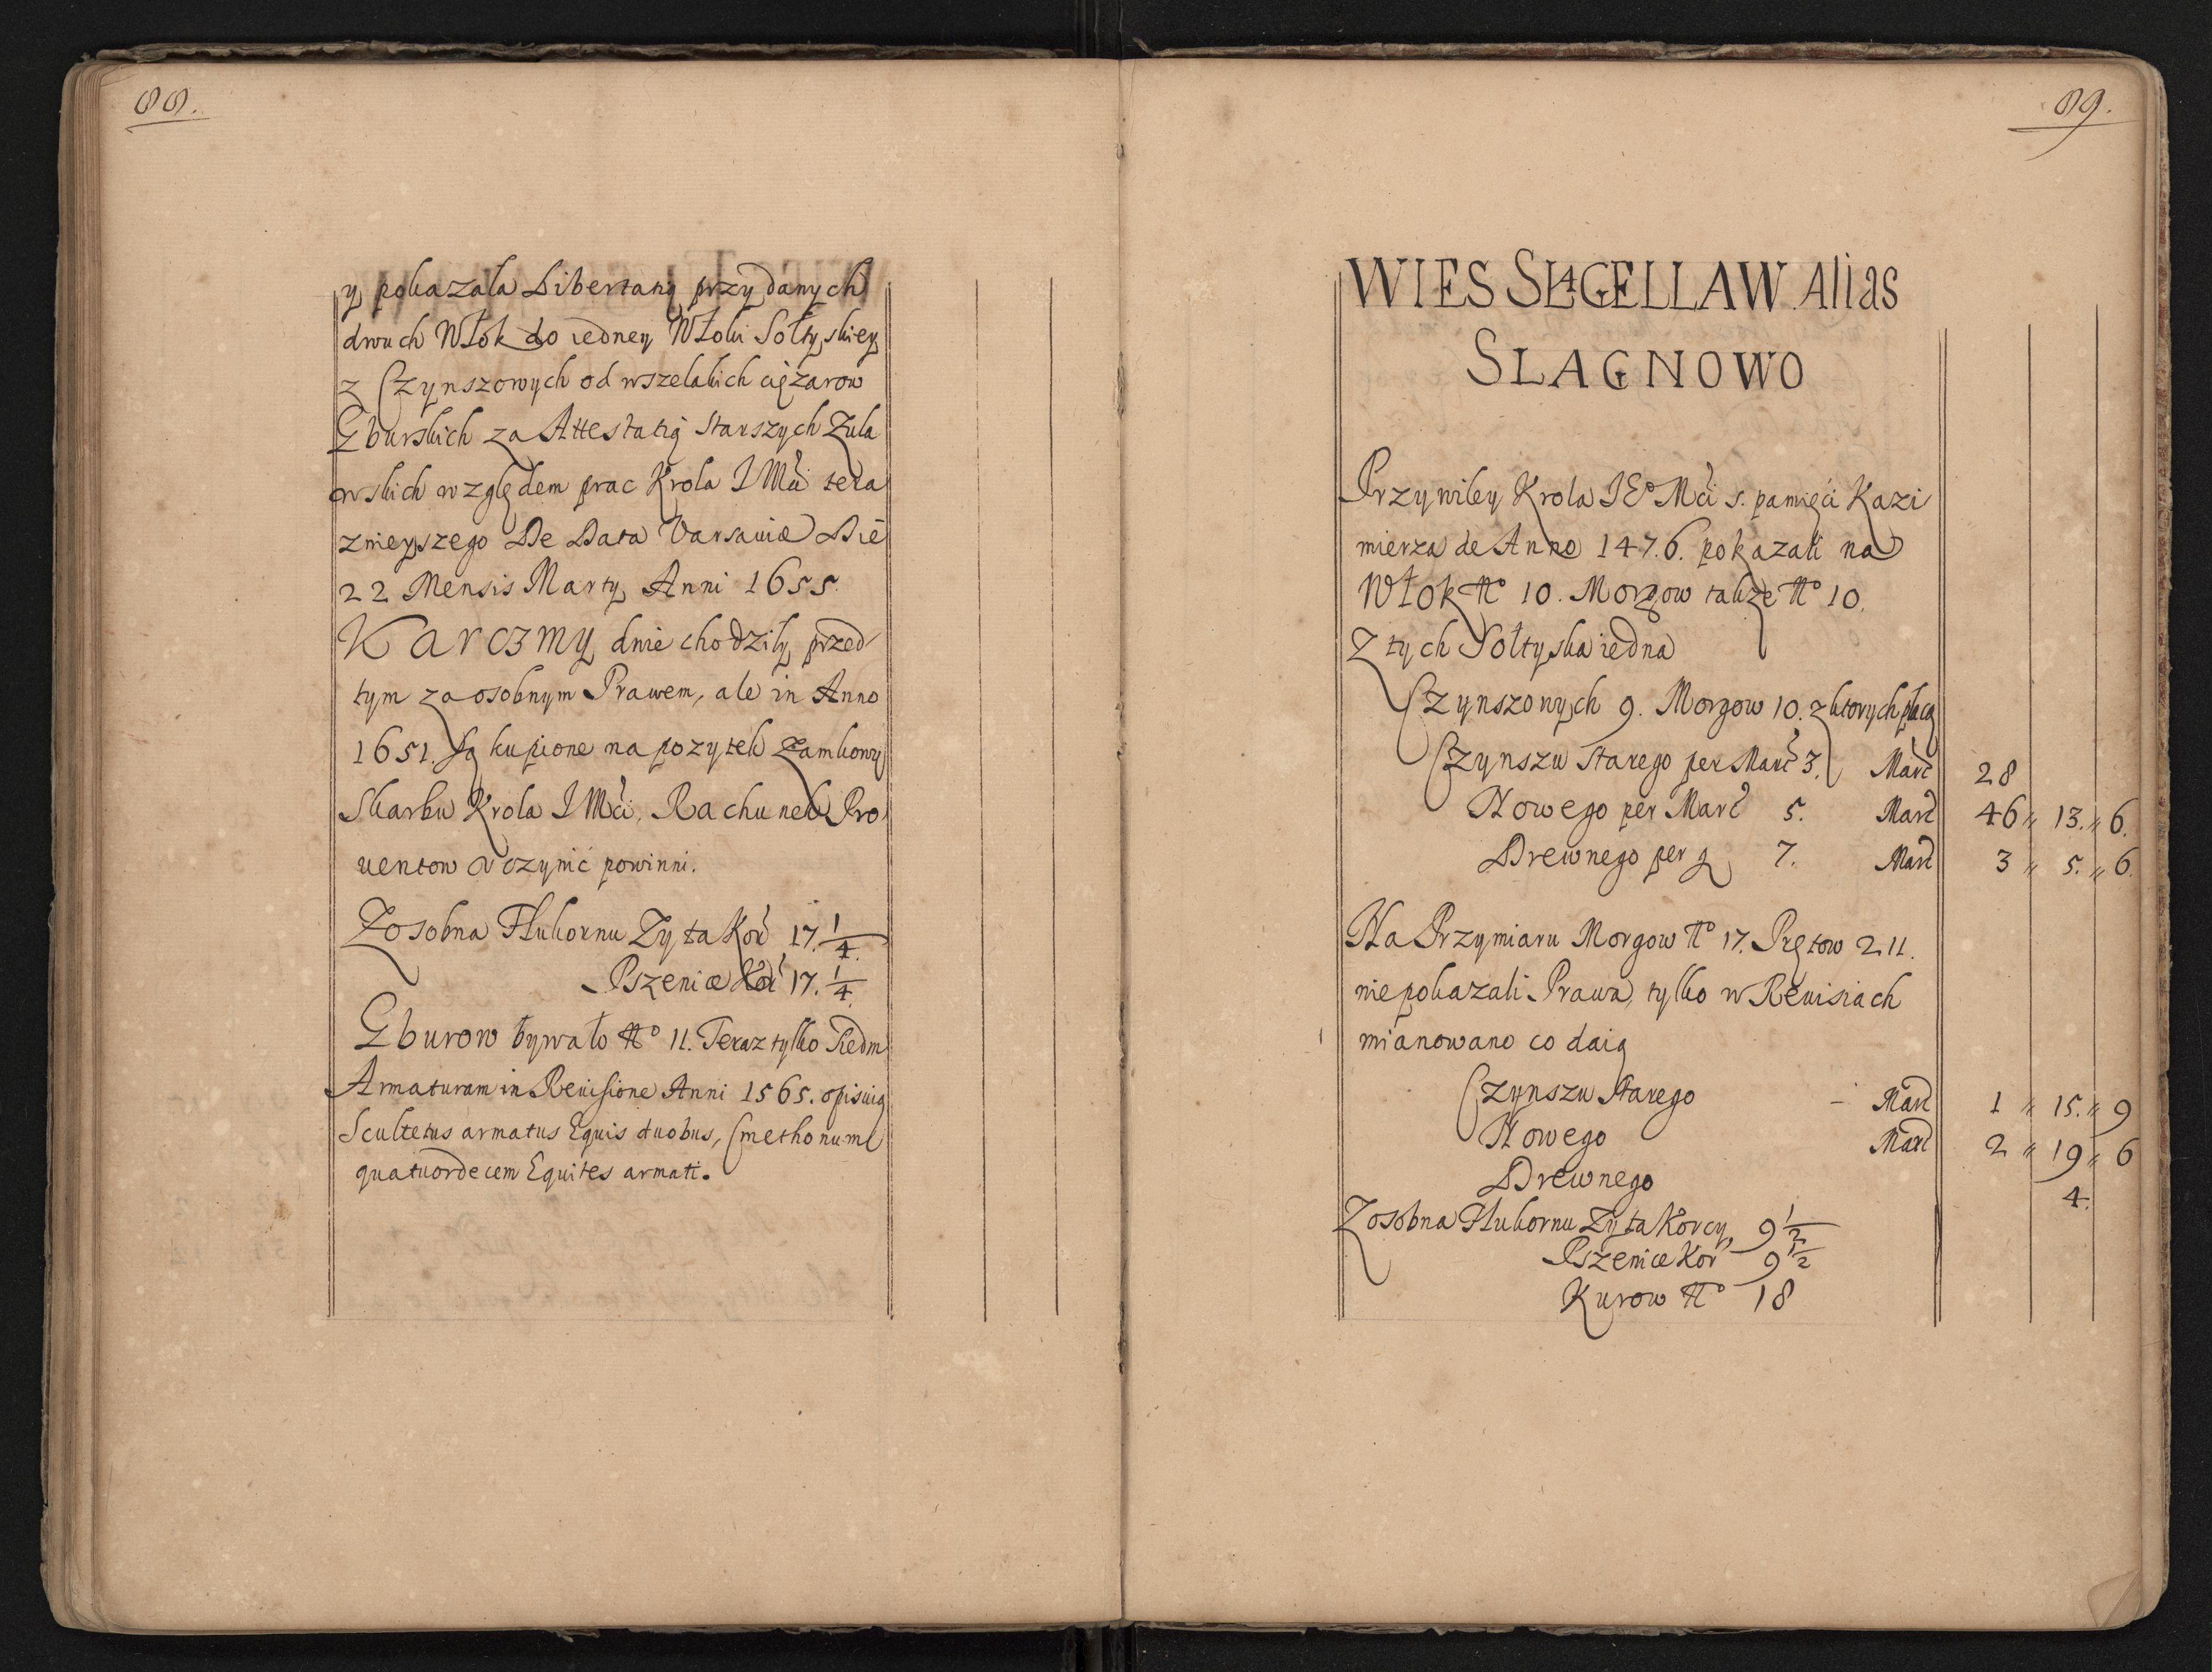 88.
y pokazala Libertatią przydanych
dwuch Włok do iedney Włoki Sołtyskiey
z Czynszowych od wszelakich ciężarow
Gburskich za Attestatią starszych Zuła
wskich względem prac Krola I Mći tera
znieyszego De Data Varsaviæ Die
22 Mensis Marty Anni 1655.
Karczmy dwie chodziły przed
tym za osobnym Prawem, ale in Anno
1651. Są kupione na pozytek Zamkowy
Skarbu Krola I Mći, Rachunek Pro
uentow uczynić powinni.
Zosobna Hukornu Zyta Kor 17. 1/4.
Pszenice Kor 17. 1/4.
Gburow bywało No 11. Teraz tylko Siedm
Armaturam in Reuisione Anni 1565. opisuią
Scultetus armatus Equis duobus, Cmethonum
quatuordecem Equites armati.
89.
WIES SLAGELLAW Alias
SLAGNOWO
Przywiley Krola IEo Mći s. pamięći Kazi
mierza de Anno 147.6. pokazali na
Włok No 10. Morgow takze No 10.
Z tych Sołtyska iedna
Czynszowych 9. Morgow 10. z ktorych płacą
Czynszu Starego per Marc 3. Marc 28
Nowego per Marc 5. Marc 46 " 13. " 6.
Drewnego per g 7. Marc 3 " 5. " 6.
Na Przymiaru Morgow No 17. Prętow 211.
niepokazali Prawa, tylko w Reuisiach
mianowano co daią
Czynszu Starego - Marc 1 " 15. " 9
Nowego Marc 2 " 19 " 6
Drewnego 4.
Zosobna Hukornu Zyta Korcy 9 1/2
Pszenice Kor 9 1/2
Kurow No 18